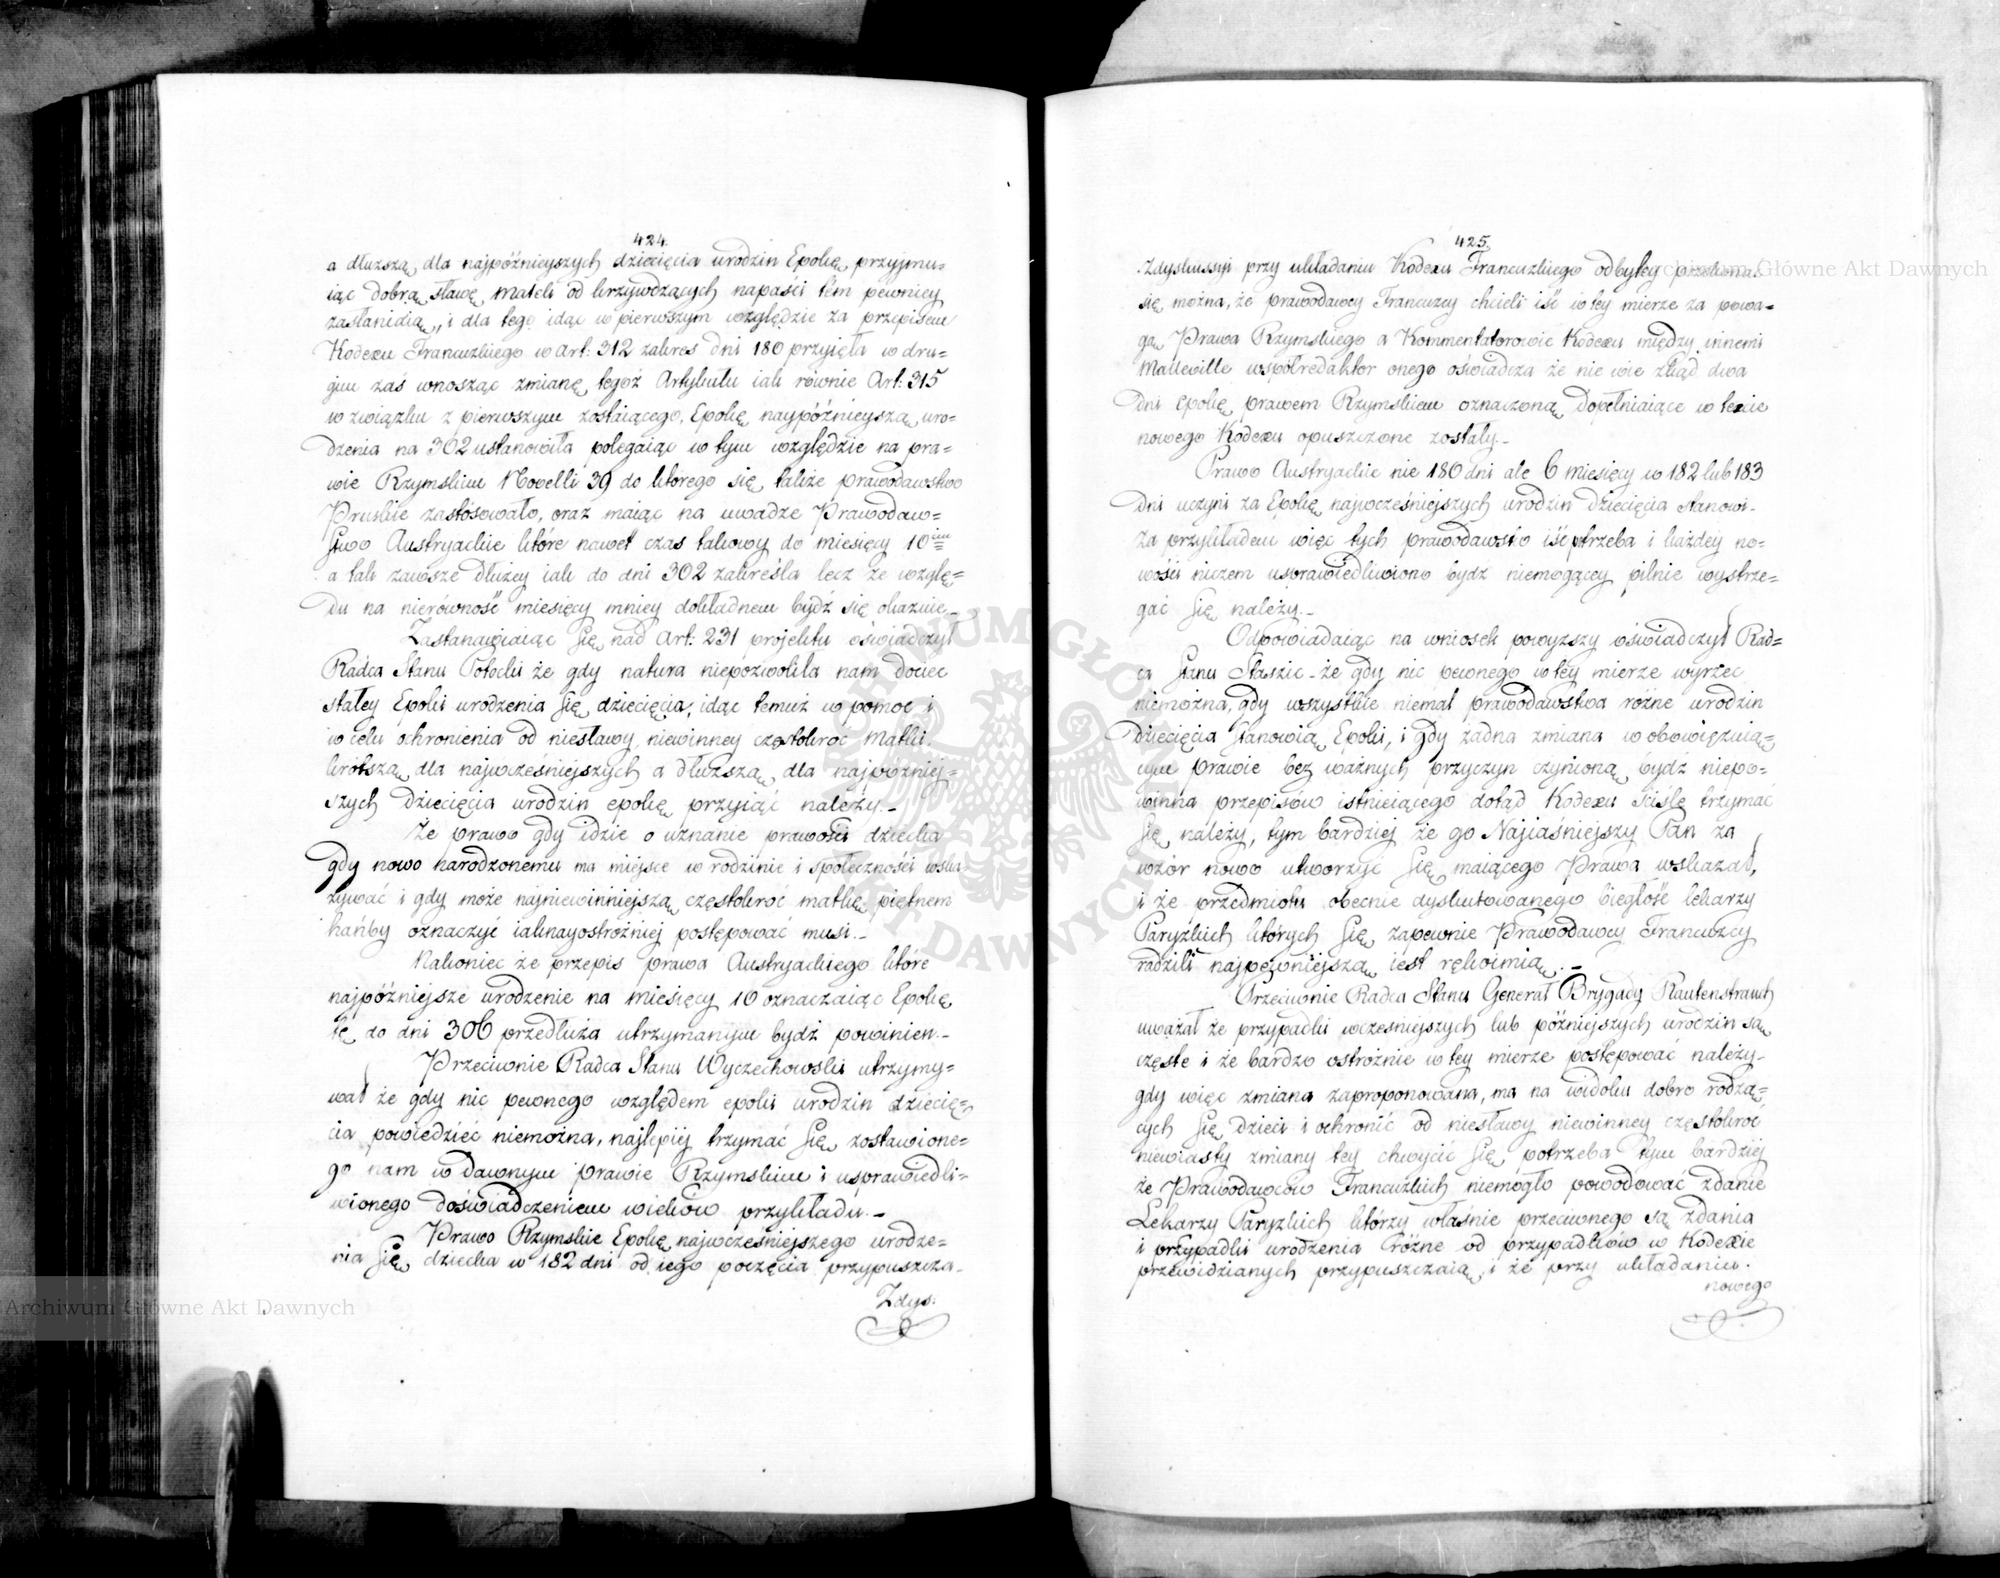 424.
a dłuższą dla najpóźnieyszych dziecięcia urodzin Epokę przyjmu=
iąc dobrą sławę Matek od krzywdzących napaści tém pewniey
zasłanidią, i dla tego idąc w pierwszym względzie za przepisem
Kodexu Francuzkiego w Art: 312 zakres dni 180 przyięła w dru=
gim zaś wnosząc zmianę tegoż Artykułu iak równie Art: 315
w związku z pierwszym zostaiącego, Epokę naypóźnieyszą uro=
dzenia na 302 ustanowiła polegaiąc w tym względzie na pra=
wie Rzymskim Novelli 39 do którego się także prawodawstwo
Pruskie zastosowało, oraz maiąc na uwadze Prawodaw=
stwo Austryackie które nawet czas takowy do miesięcy 10ciu
a tak zawsze dłużey iak do dni 302 zakreśla lecz ze wzglę=
du na nierówność miesięcy mniey dokładnem bydź się okazuie_
Zastanawiaiąc się nad Art: 231 projektu oświadczył
Radca Stanu Potocki że gdy natura niepozwoliła nam dociec
stałey Epoki urodzenia się dziecięcia, idąc temuż w pomoc i
w celu ochronienia od niesławy niewinney częstokroć Matki,
krótszą dla najwcześniejszych a dłuższą dla najpóźniej=
szych dziecięcia urodzin epokę przyiąć należy._
Że prawo gdy idzie o uznanie prawości dziecka
gdy nowo narodzonemu ma miejsce w rodzinie i społeczności wska
zywać i gdy może najniewinniejszą częstokroć matkę piętnem
hańby oznaczyć iaknayostróżniej postępować musi._
Nakoniec że przepis prawa Austryackiego które
najpóźniejsze urodzenie na miesięcy 10 oznaczaiąc Epokę
tę do dni 306 przedłuża utrzymanym bydź powinien._
Przeciwnie Radca Stanu Wyczechowski utrzymy=
wał że gdy nic pewnego względem epoki urodzin dziecię=
cia powiedzieć niemożna, najlepiéj trzymać się zostawione=
go nam w dawnym prawie Rzymskim i usprawiedli=
wionego doświadczeniem wieków przykładu._
Prawo Rzymskie Epokę najwcześniejszego urodze=
nia się dziecka w 182 dni od iego poczęcia przypuszcza.
Zdys:
425.
Zdyskussyi przy układaniu Kodexu Francuzkiego odbytey przekonać
się można, że prawodawcy Francuzcy chcieli iść w tey mierze za powa=
gą Prawa Rzymskiego a Kommentatorowie Kodexu między innemi
Malleville współredaktor onego oświadcza że nie wie zkąd dwa
dni epokę prawem Rzymskim oznaczoną dopełniaiące w texcie
nowego Kodexu opuszczone zostały._
Prawo Austryackie nie 180 dni ale 6 miesięcy w 182 lub 183
dni uczyni za Epokę najwcześniejszych urodzin dziecięcia stanowi.
Za przykładem więc tych prawodawstw iść potrzeba i każdey no=
wości niczem usprawiedliwiono bydź niemogącey pilnie wystrze=
gać się należy._
Odpowiadaiąc na wniosek powyższy oświadczył Rad=
ca Stanu Staszic - że gdy nic pewnego w tey mierze wyrzec
niemożna, gdy wszystkie niemal prawodawstwa różne urodzin
dziecięcia stanowią Epoki, i gdy żadna zmiana w obowięzuią=
cym prawie bez ważnych przyczyn czynioną bydź niepo=
winna przepisów istnieiącego dotąd Kodexu ściśle trzymać
się należy, tym bardziej że go Najiaśniejszy Pan za
wzór nowo utworzyć się maiącego Prawa wskazał,
i że przedmiotu obecnie dyskutowanego biegłość lekarzy
Paryzkich których się zapewnie Prawodawcy Francuzcy
radzili najpewniejszą iest rękoimią._
Przeciwnie Radca Stanu Generał Brygady Rautenstrauch
uważał że przypadki wcześniejszych lub późniejszych urodzin są
częste i że bardzo ostrożnie w tey mierze postępować należy_
gdy więc zmiana zaproponowana, ma na widoku dobro rodzą=
cych się dzieci i ochronić od niesławy niewinney częstokroć
niewiasty zmiany tey chwycić się potrzeba tym bardziej
że Prawodawców Francuzkich niemogło powodować zdanie
Lekarzy Paryzkich którzy właśnie przeciwnego są zdania
i przypadki urodzenia różne od przypadków w Kodexie
przewidzianych przypuszczaią, i że przy układaniu.
nowego
Archiwum Główne Akt Dawnych
Archiwum Główne Akt Dawnych
ARCHIWUM GŁÓWNE AKT DAWNYCH